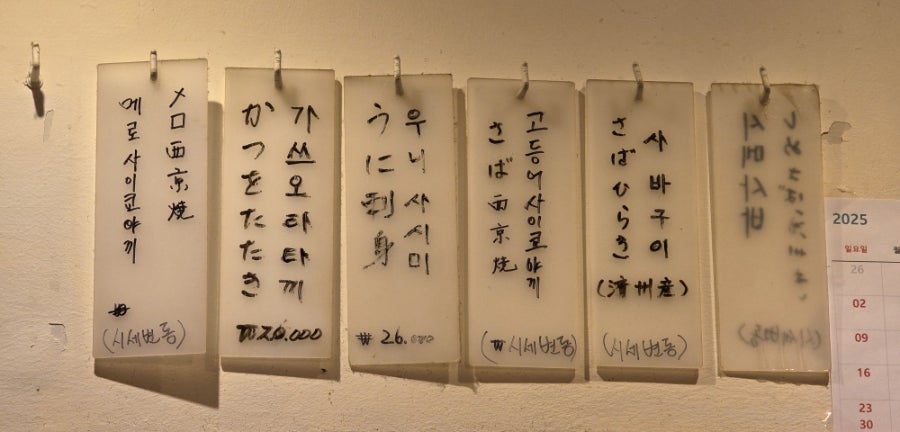 メロ西京焼
메로사이쿄야끼
₩
(시세변동)
가쓰오타타끼
かつをたたき
₩20.000
우니 사시미
うに刺身
₩ 26.000
고등어사이쿄야끼
さば西京焼
(₩시세변동)
사바구이
さばひらき
(濟州産)
(시세변동)
시메사바
(시세변동)
2025
일요일
26
02
09
16
23
30